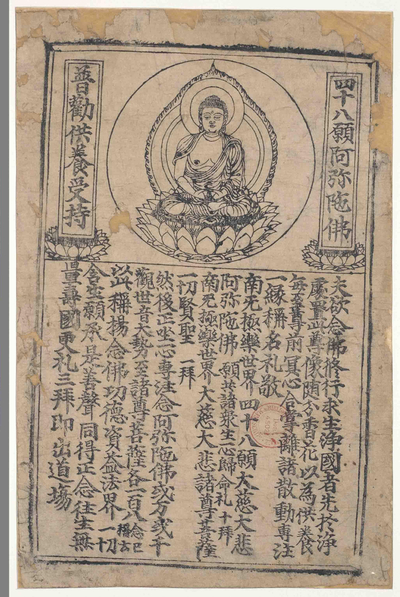 四十八願阿弥陁佛
普勸供養受持
夫欲念佛修行求生淨國者先於淨
處置此尊像随分香花以為供養
每至尊前冥心合掌離諸散動專注
一緣稱名礼敬
南无極樂世界四十八願大慈大悲
阿弥陁佛 願共諸衆生一心歸命礼 十拜
南无極樂世界大慈大悲諸尊菩薩
一切賢聖 一拜
然後正坐一心專注念阿弥陁佛或万或千
觀世音大勢至諸尊菩薩各一百八念已稱云
以此稱揚念佛功德資益法界一切
含生願承是善聲同得正念往生無
量壽國更礼三拜即出道場